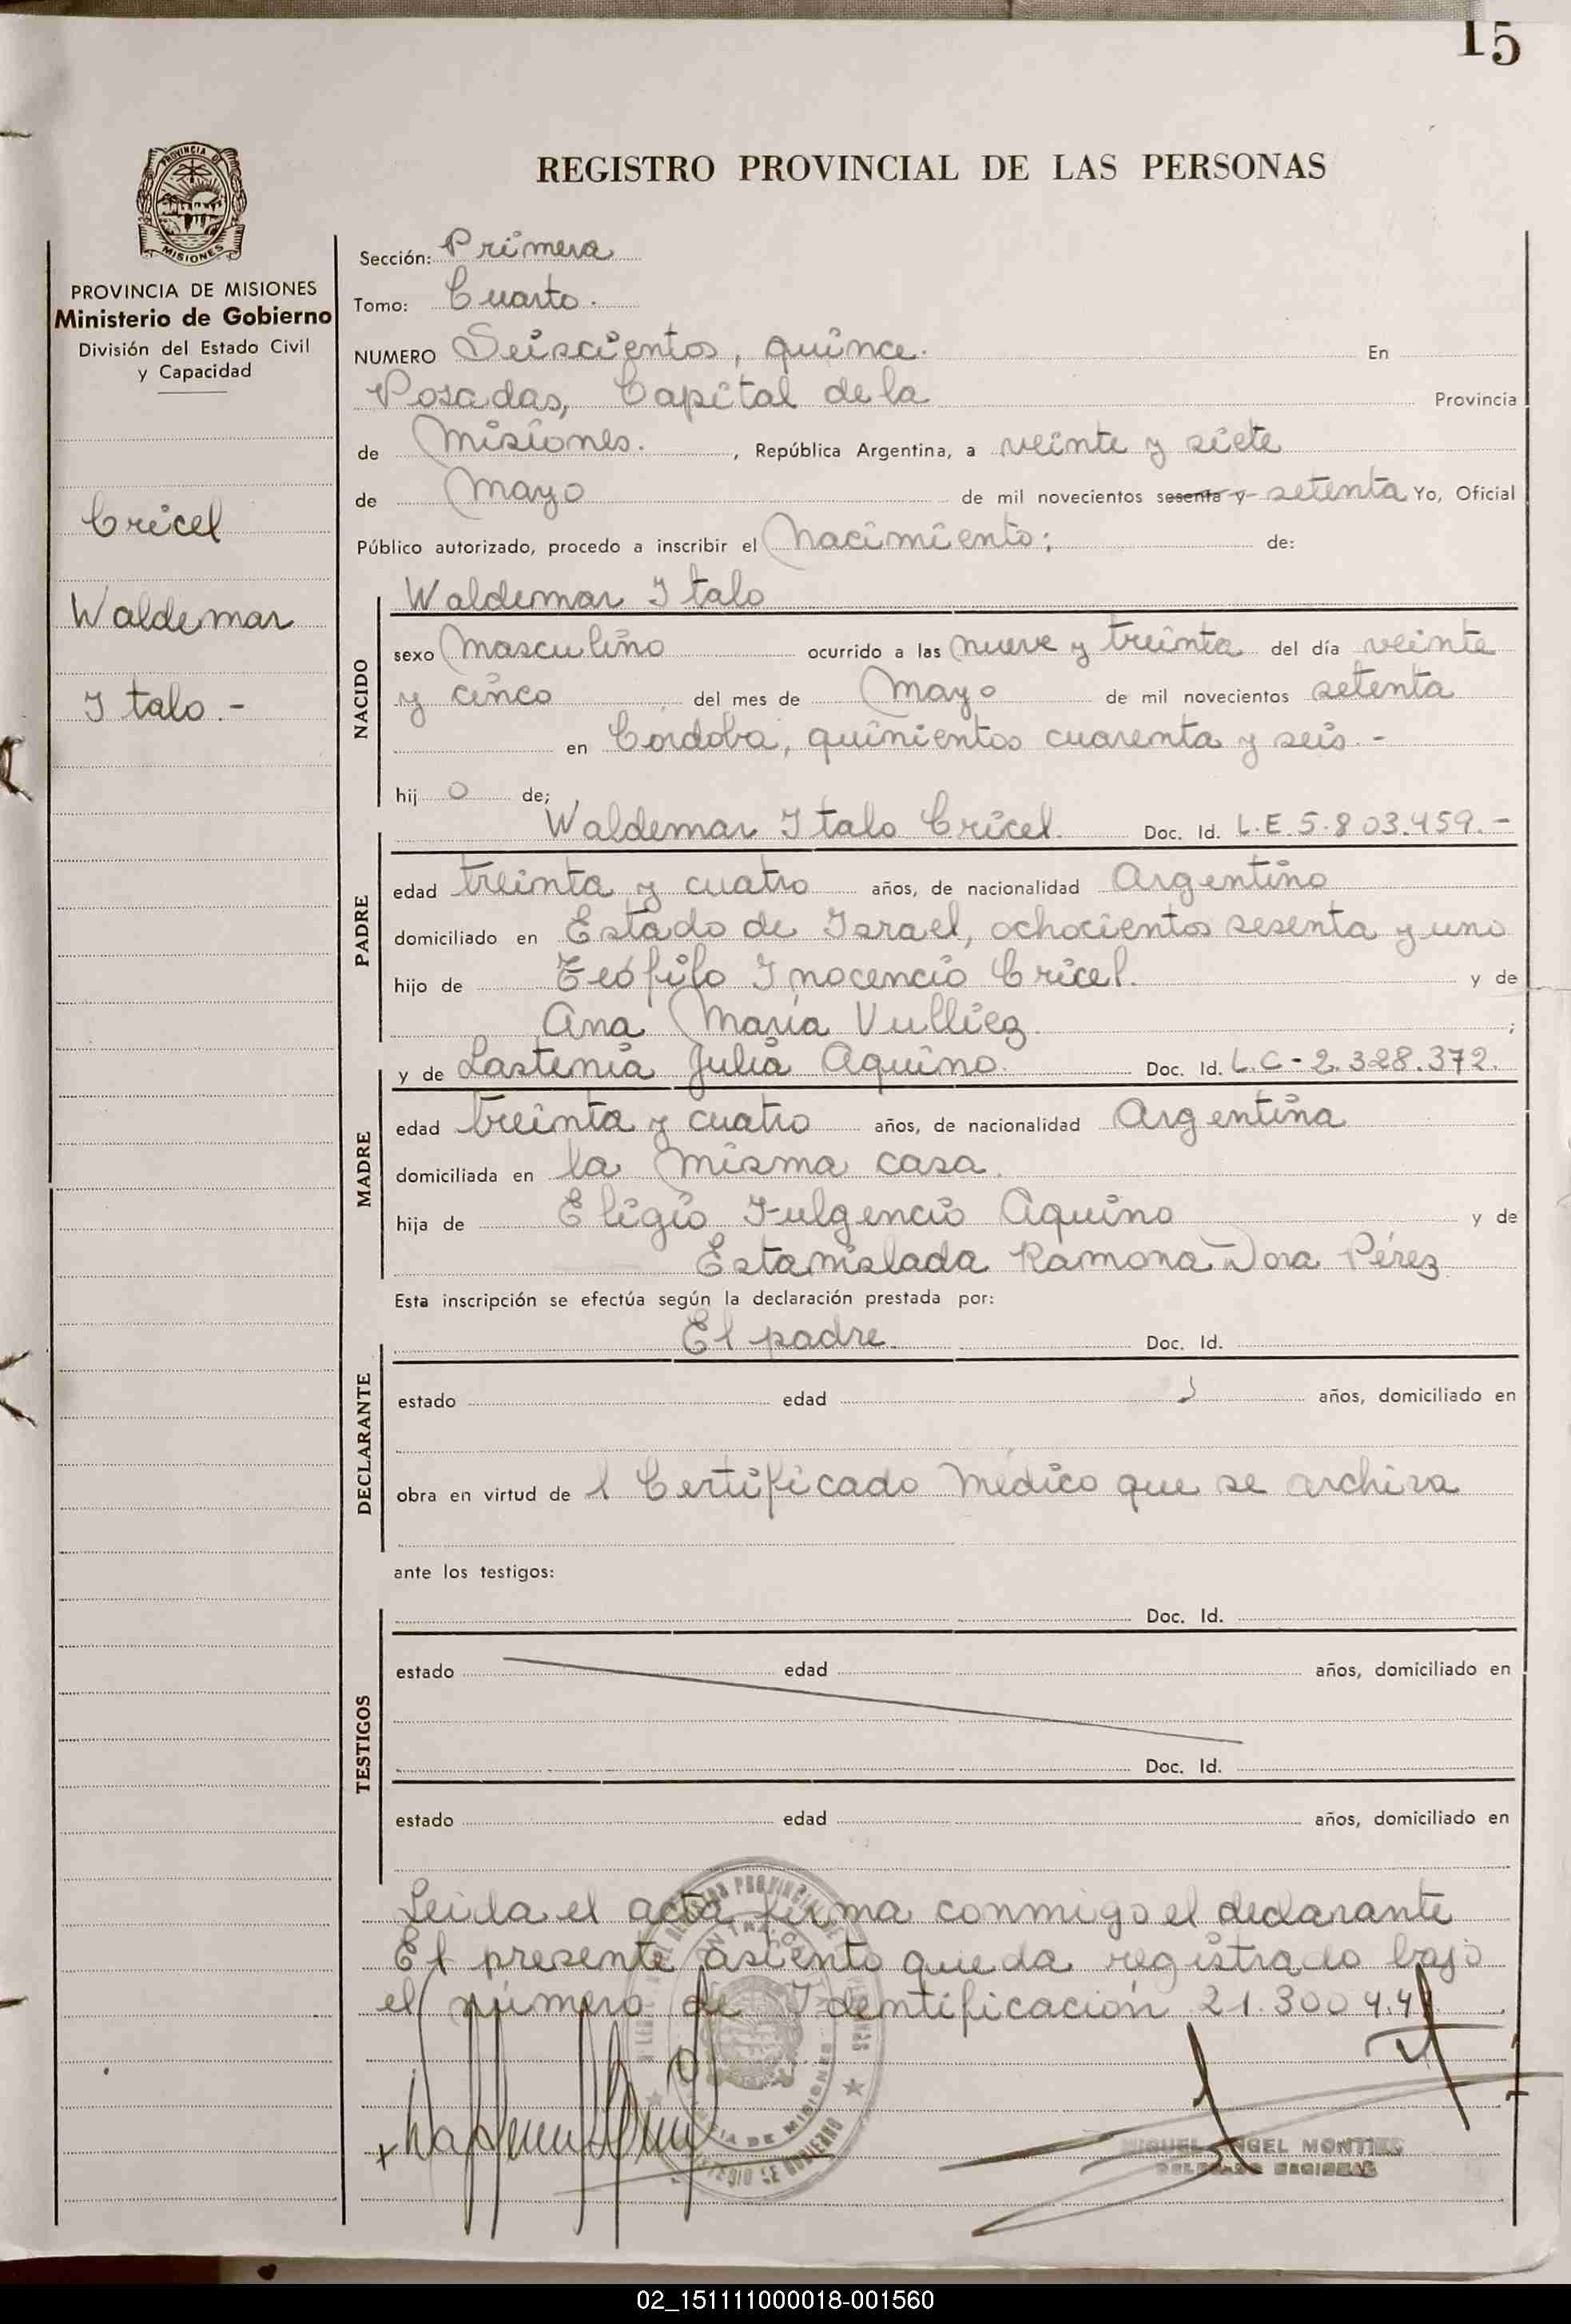 15
REGISTRO PROVINCIAL DE LAS PERSONAS
PROVINCIA DE MISIONES
PROVINCIA DE MISIONES
Ministerio de Gobierno
División del Estado Civil
y Capacidad
Cricel
Waldemar
Italo.-
Sección: Primera
Tomo: Cuarto.
NUMERO Seiscientos, quince. En
Posadas, Capital de la Provincia
de Misiones. , República Argentina, a veinte y siete
de Mayo de mil novecientos sesenta y setenta Yo, Oficial
Público autorizado, procedo a inscribir el Nacimiento; de:
NACIDO
Waldemar Italo
sexo Masculino ocurrido a las nueve y treinta del día veinte
y cinco del mes de Mayo de mil novecientos setenta
en Cordoba, quinientos cuarenta y seis.-
hij o de;
PADRE
Waldemar Italo Cricel. Doc. Id. L.E. 5.803.459.-
edad treinta y cuatro años, de nacionalidad Argentino
domiciliado en Estado de Israel, ochocientos sesenta y uno
hijo de Teófilo Inocencio Cricel. y de
Ana María Vulliez. ;
MADRE
y de Lastenia Julia Aquino. Doc. Id. L.C-2.328.372.
edad treinta y cuatro años, de nacionalidad Argentina
domiciliada en la misma casa.
hija de Eligio Fulgencio Aquino y de
Estanislada Ramona Dora Pérez
Esta inscripción se efectúa según la declaración prestada por:
DECLARANTE
El padre. Doc. Id.
estado edad años, domiciliado en
obra en virtud de l Certificado Médico que se archiva
ante los testigos:
TESTIGOS
Doc. Id.
estado edad años, domiciliado en
Doc. Id.
estado edad años, domiciliado en
Leida el acta firma conmigo el declarante
El presente asiento queda registrado bajo
el número de Identificación
MIGUEL ANGEL MONTIEL
DELEGADO REGIONAL
02_151111000018-001560